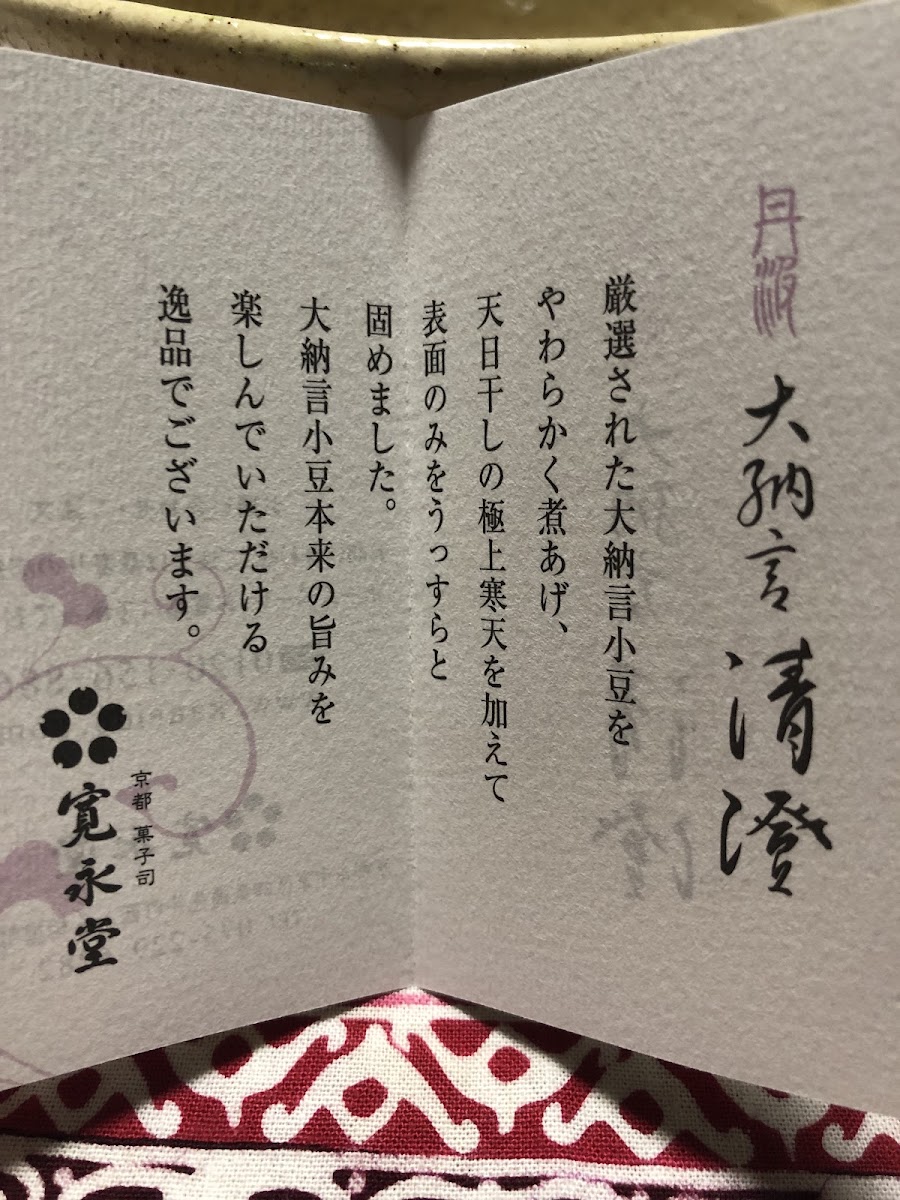 丹波 大納言 清澄
厳選された大納言小豆を
やわらかく煮あげ、
天日干しの極上寒天を加えて
表面のみをうっすらと
固めました。
大納言小豆本来の旨みを
楽しんでいただける
逸品でございます。
京都 菓子司
寛永堂